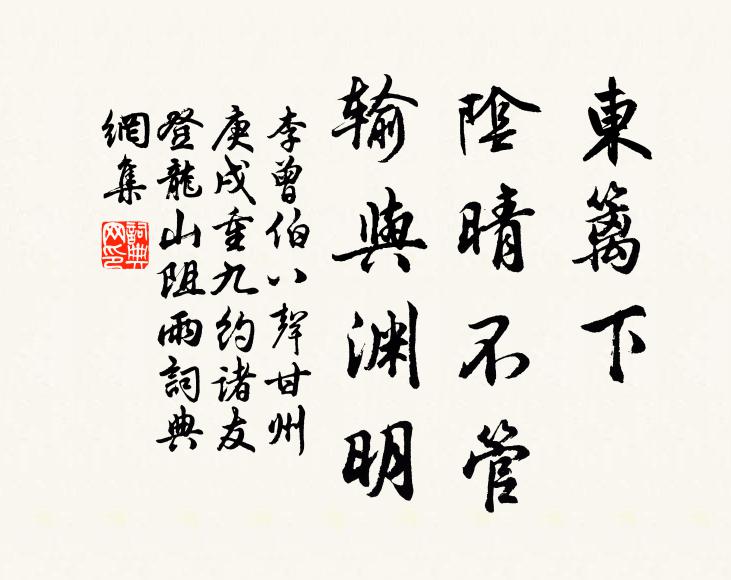 東籬下
陰晴不管
輸與淵明
李曾伯八聲甘州
庚戌重九約諸友
登龍山阻雨詞典
網集
詞典网印